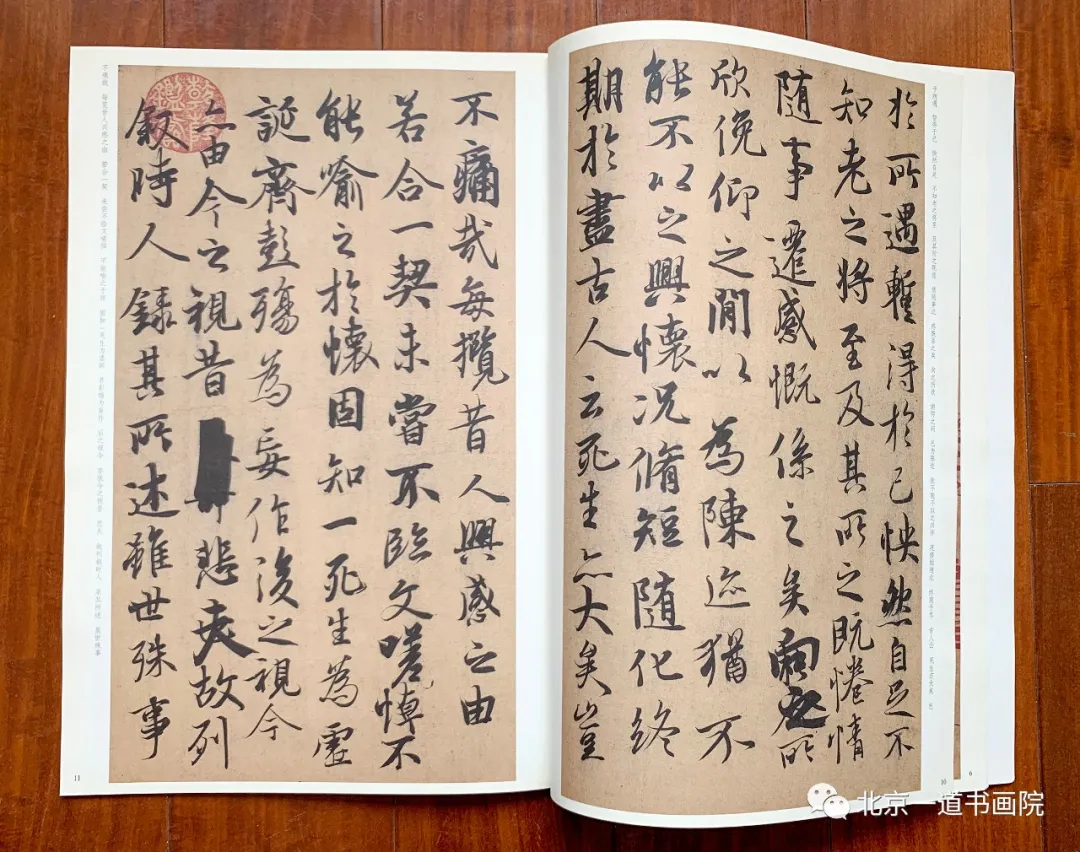 於所遇暫得於己怏然自足不
知老之將至及其所之既惓情
隨事遷感慨係之矣向之所
欣俛仰之閒以為陳迹猶不
能不以之興懷況脩短隨化終
期於盡古人云死生亦大矣豈
10
6
不痛哉每攬昔人興感之由
若合一契未嘗不臨文嗟悼不
能喻之於懷固知一死生為虛
誕齊彭殤為妄作後之視今
亦由今之視昔悲夫故列
敘時人錄其所述雖世殊事
11
北京一道书画院